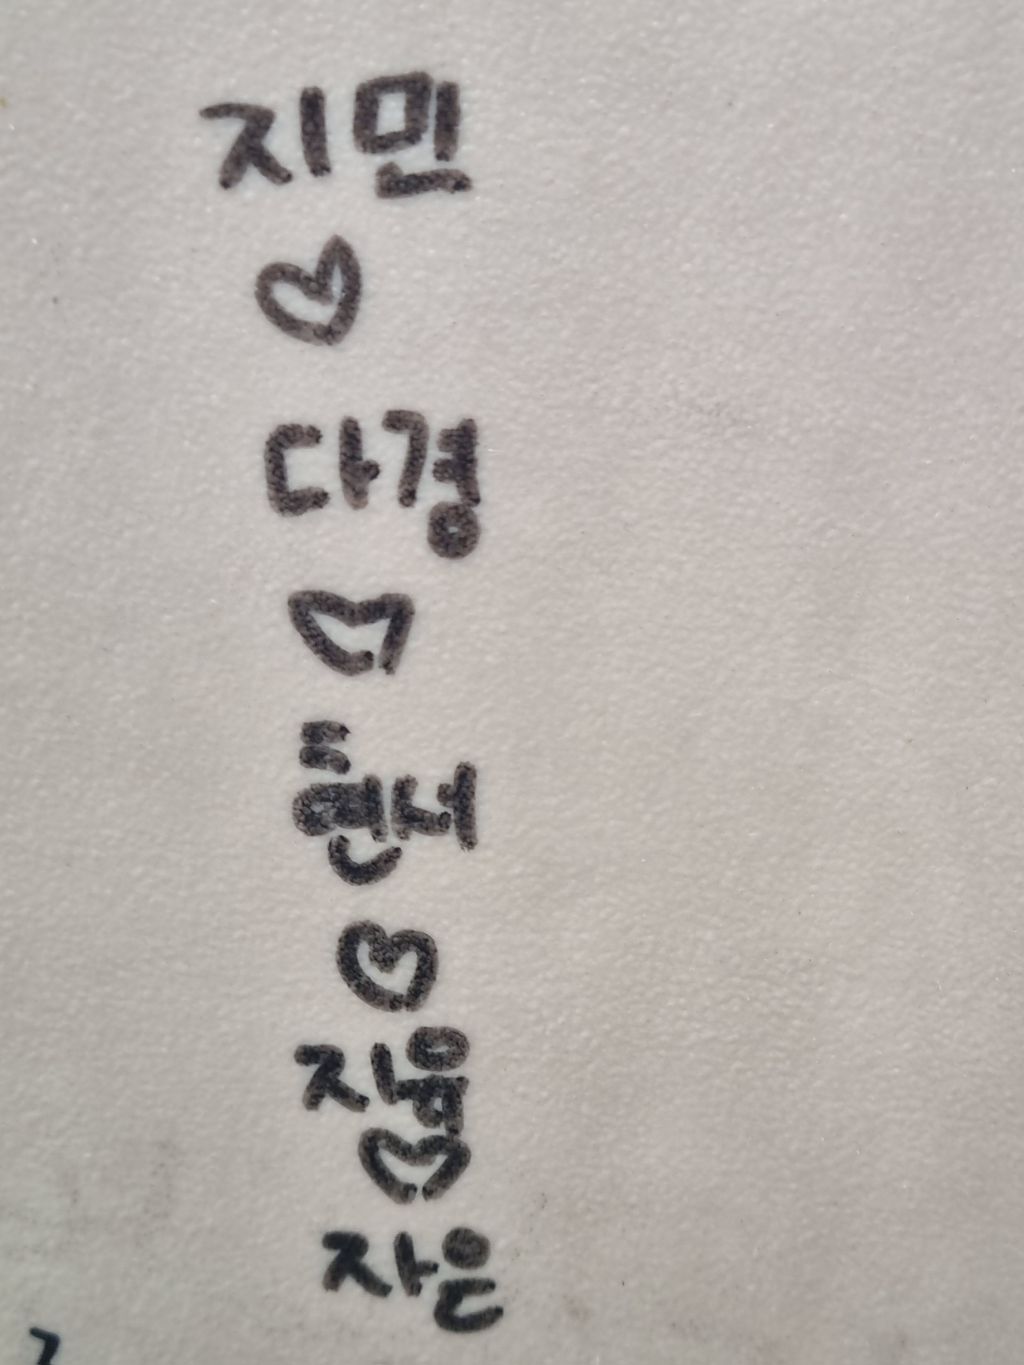 지민
♡
다경
♡
현서
♡
지음
♡
자은